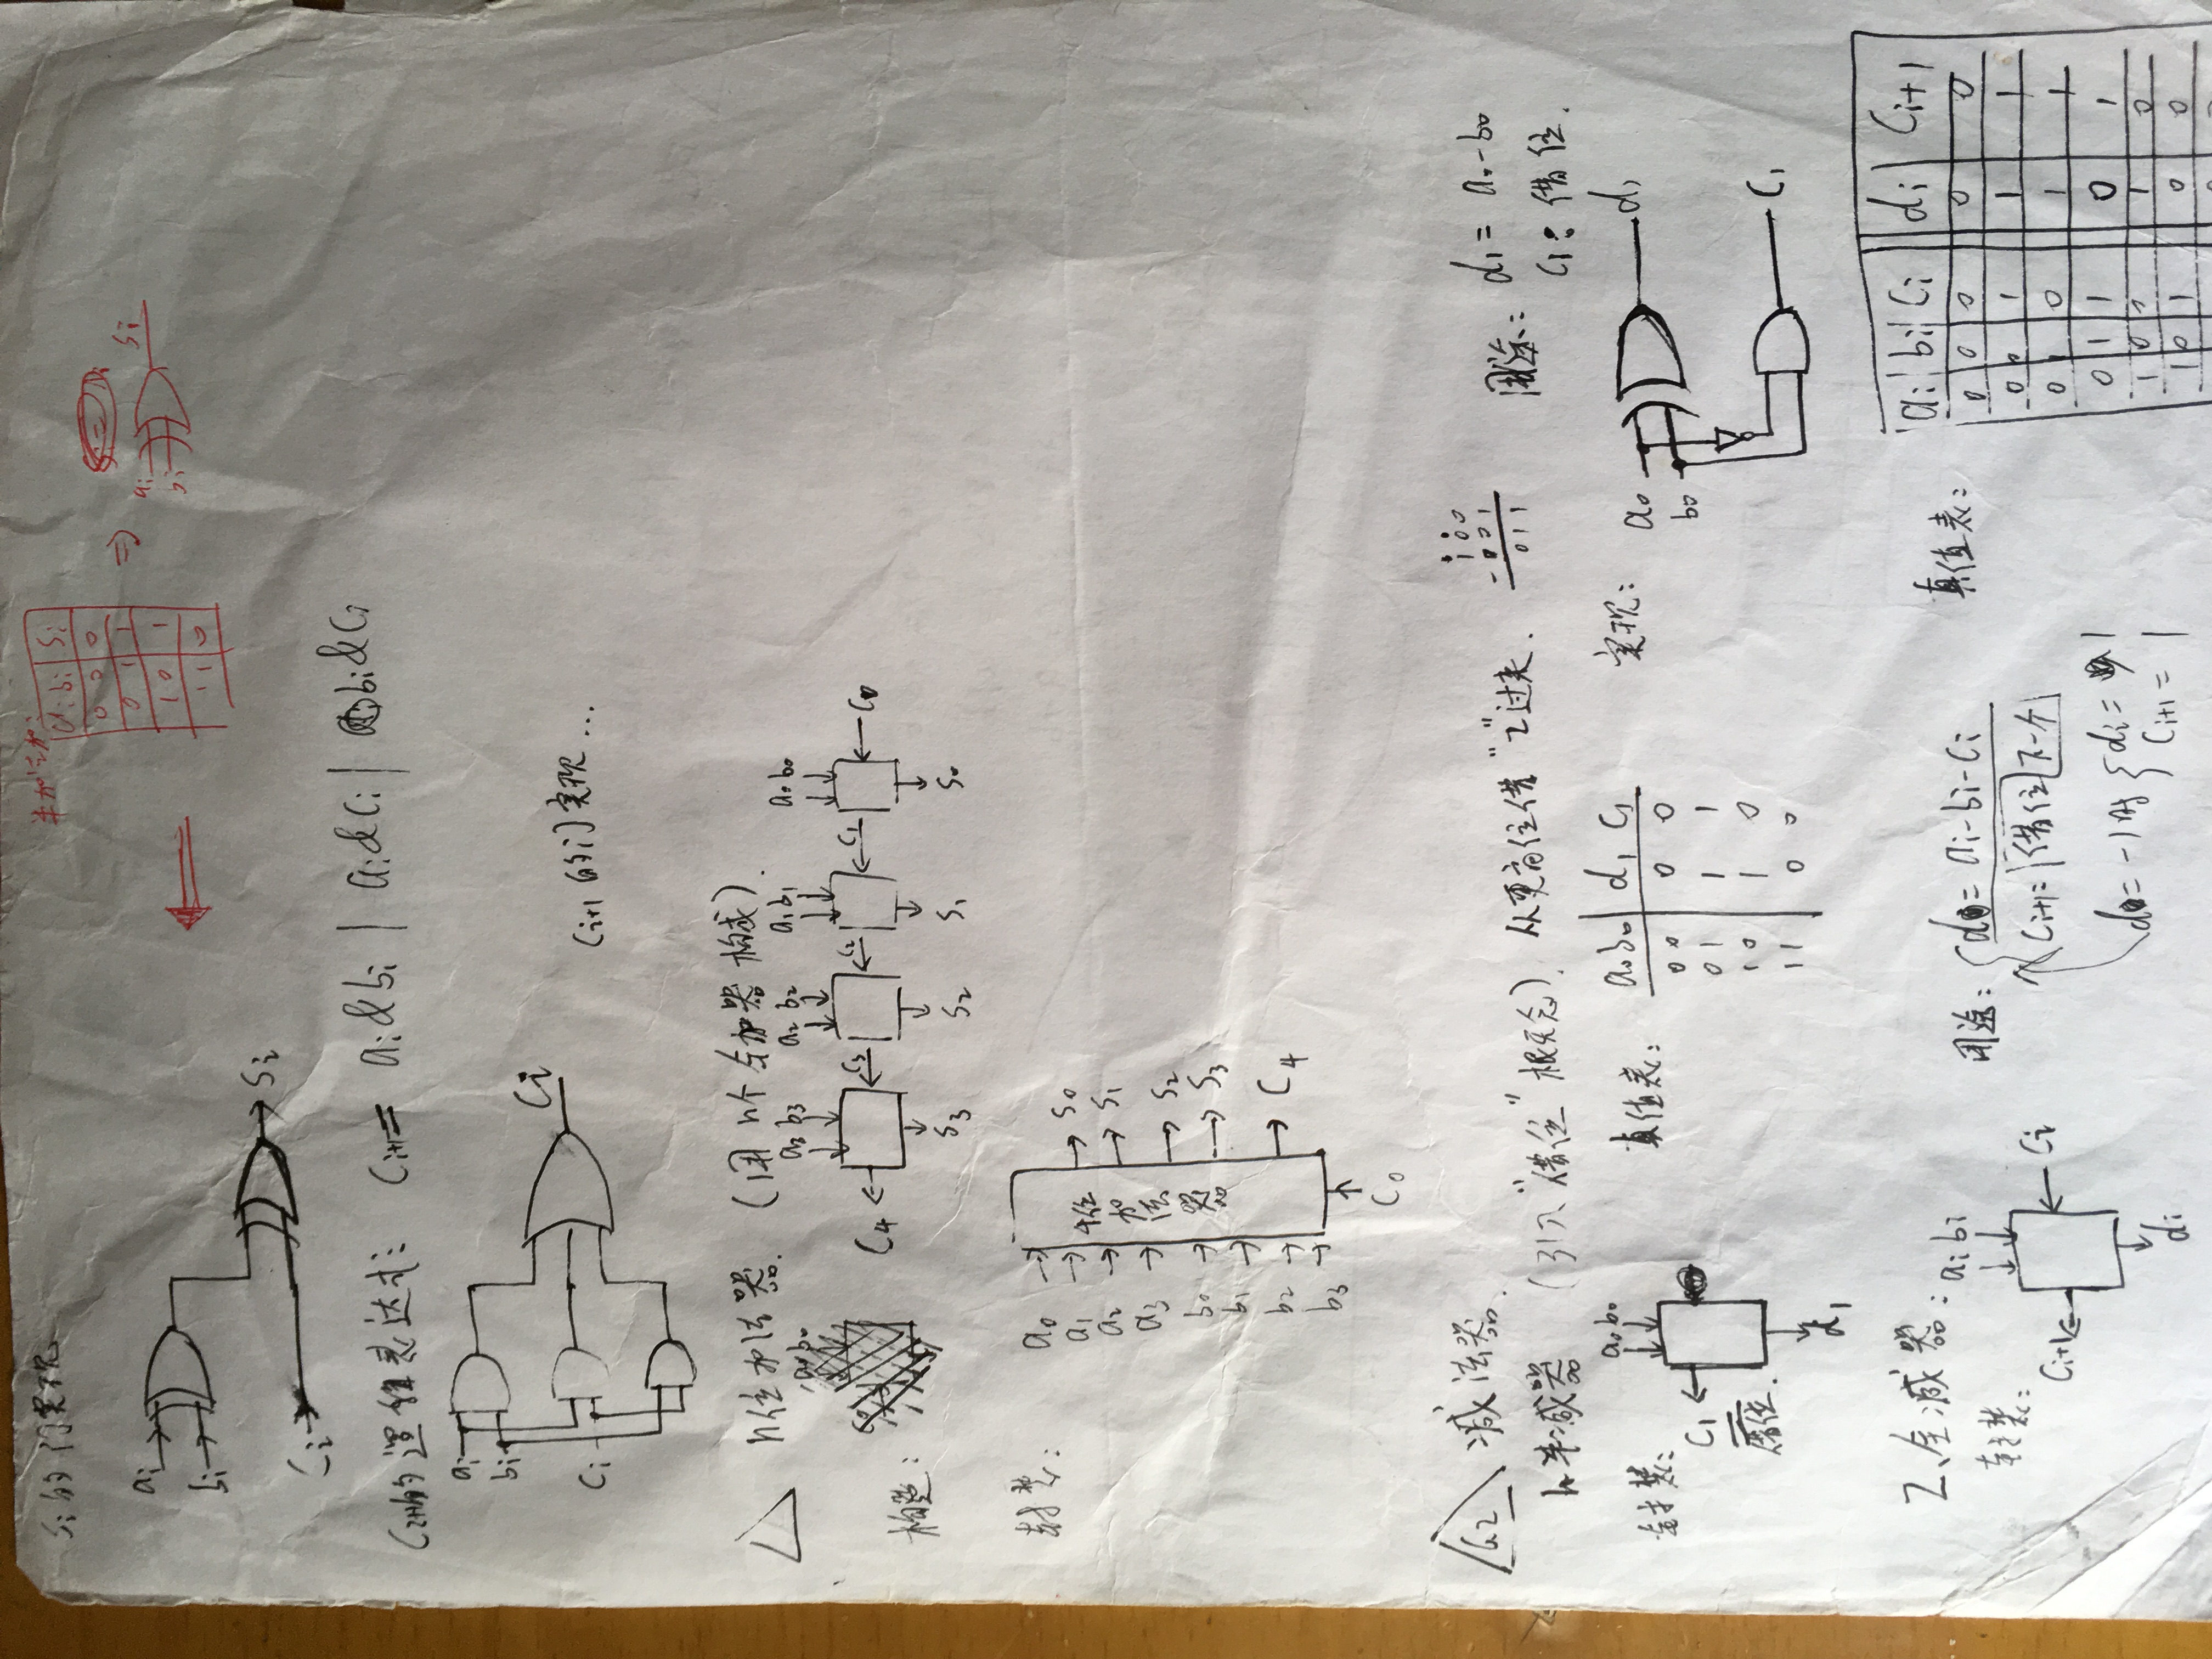 Si的门实现
半加之和:
ai bi Si
0 0 0
0 1 1
1 0 1
1 1 0
⇒
ai
bi
Si
ai
bi
Ci
Si
Ci+1的逻辑表达式: Ci+1= ai&bi | ai&Ci | bi&Ci
ai
bi
Ci
Ci
Ci+1的门实现...
n位加法器. (用n个全加器构成).
a3 b3 a2 b2 a1 b1 a0 b0
C4 C3 C2 C1 C0
构造:
S3 S2 S1 S0
封装:
a0
a1
a2
a3
b0
b1
b2
b3
4位加法器
S0
S1
S2
S3
C4
C0
减法器.
半减器 (引入"借位"概念). 从更高位借"2"过来.
100
-001
011
用途: d1= a0-b0
C1: 借位.
封装:
a0 b0
C1
借位.
d1
真值表:
a0 b0 d1 C1
0 0 0 0
0 1 1 1
1 0 1 0
1 1 0 0
实现:
a0
b0
d1
C1
2、全减器:
封装:
ai bi
Ci+1 Ci
di
用途: d= ai-bi-Ci
Ci+1= 借位下一个
d= -1时 di= 1
Ci+1= 1
真值表:
ai bi Ci di Ci+1
0 0 0 0 0
0 0 1 1 1
0 1 0 1 1
0 1 1 0 1
1 0 0 1 0
1 0 1 0 0